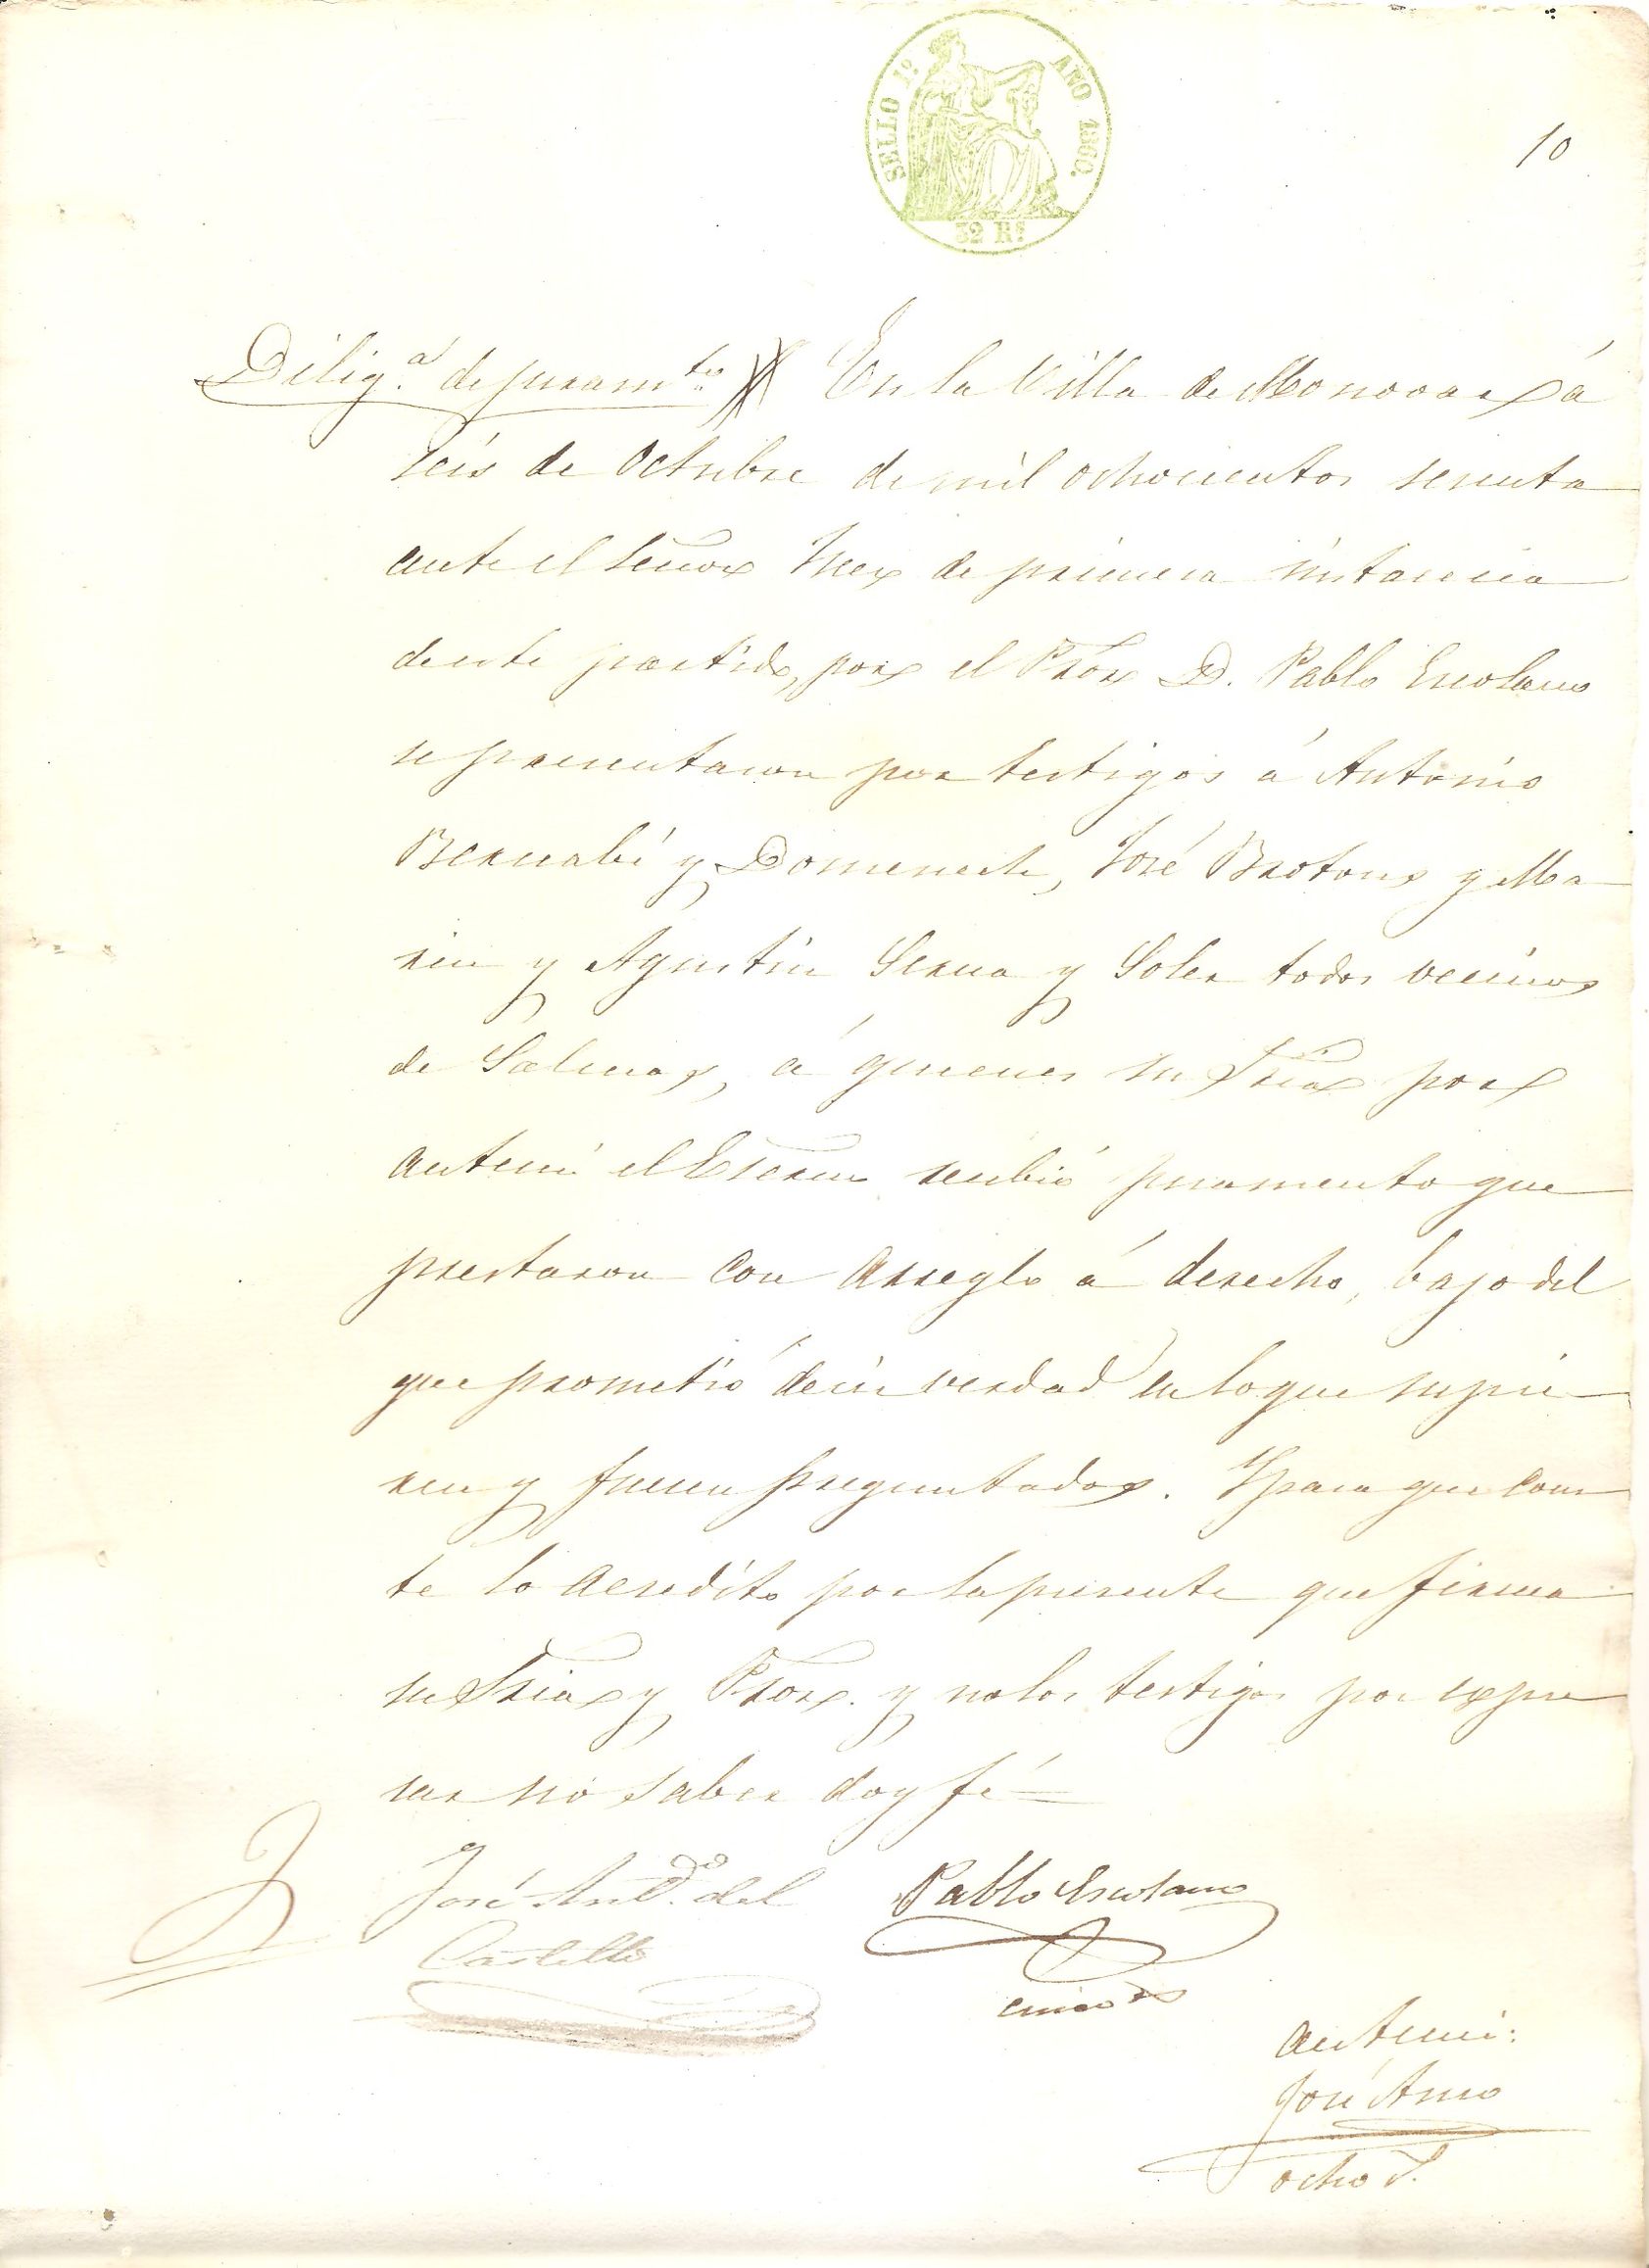 SELLO 1º AÑO 1860.
32 Rs
10
Diligª de juramto En la Villa de Monovar á
seis de Octubre de mil ochocientos sesenta
ante el Señor Juez de primera instancia
de este partido, por el Pror D. Pablo Escolano
se presentaron por testigos á Antonio
Bernabé y Domenech, José Brotons y Ma
rin y Agustin Serna y Soler todos vecinos
de Salinas, á quienes su Sria por
antemi el Escno recibió juramento que
prestaron con arreglo á derecho, bajo del
que prometió decir verdad en lo que supie
ren y fueren preguntados. Y para que cons
te lo acredito por la presente que firma
su Sria y Pror. y no los testigos por expre
sar no saber doy fé
José Anto. del Pablo Escolano
Castillo
cinco rs
antemi:
José Amo
ocho